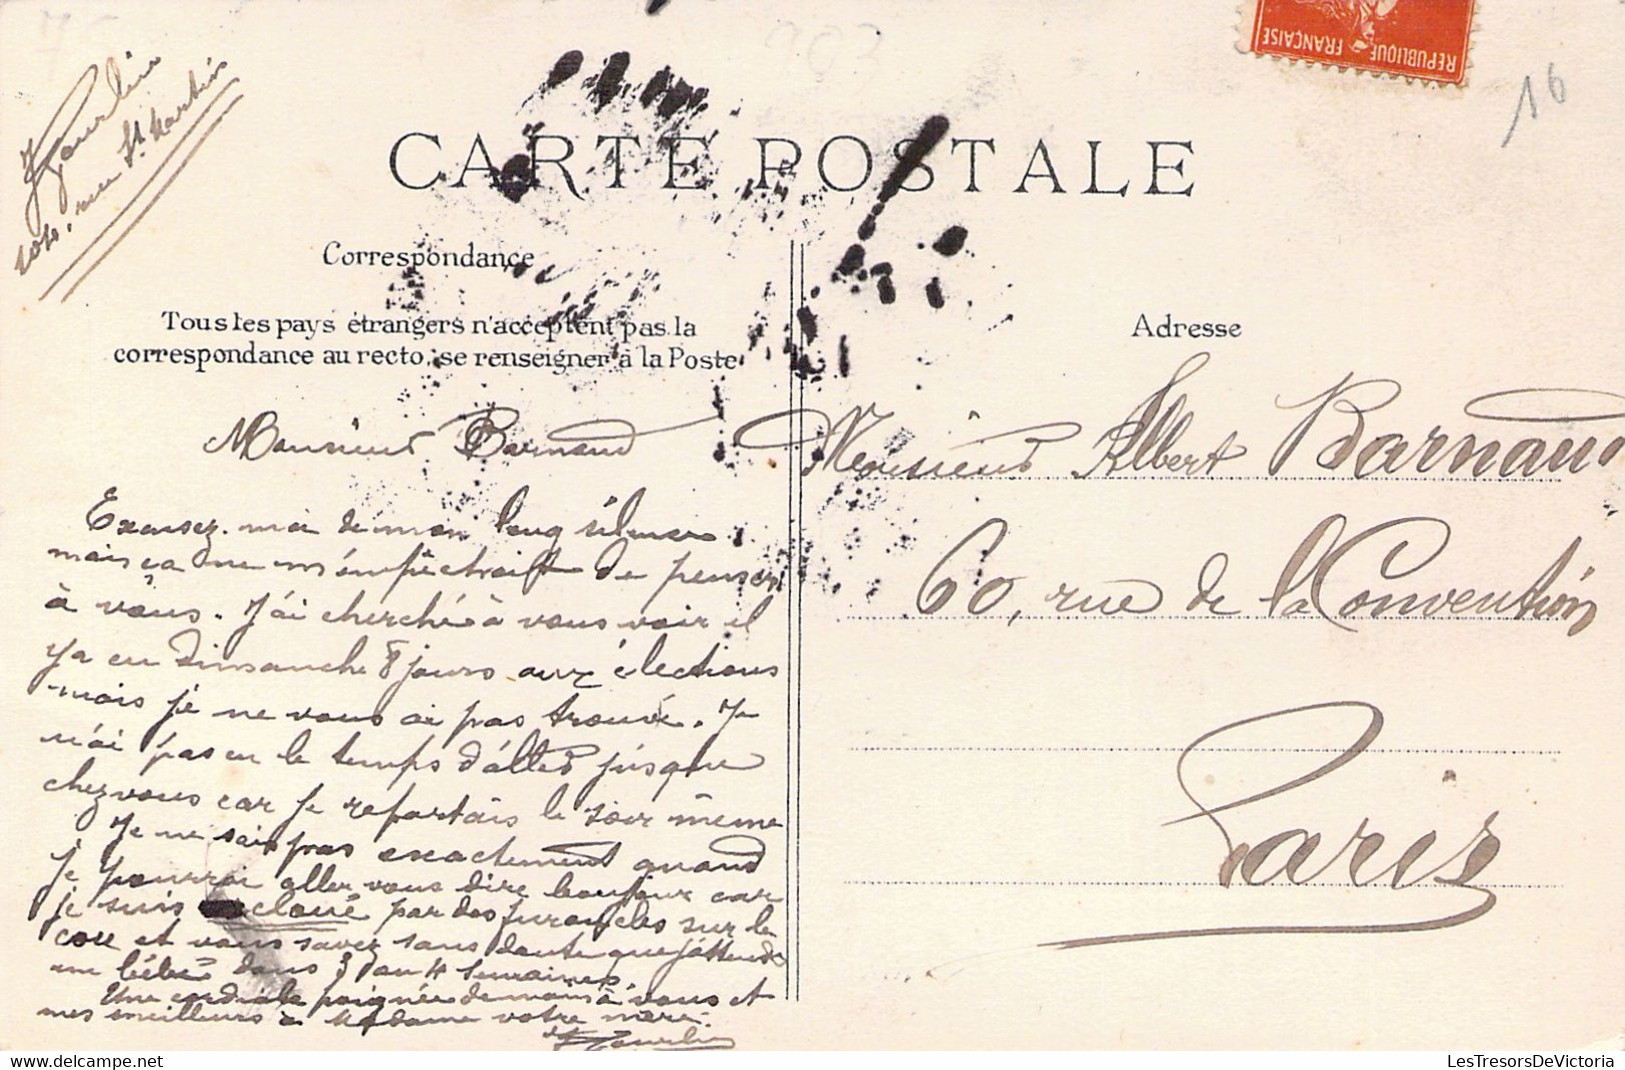 REPUBLIQUE FRANÇAISE
16
rue St. Martin
CARTE POSTALE
Correspondance
Tous les pays étrangers n'acceptent pas la
correspondance au recto, se renseigner à la Poste
Adresse
Monsieur Barnaud
Excusez-moi de mon long silence
mais ça ne m'empêchait de penser
à vous. J'ai cherché à vous voir il
y a eu Dimanche 8 jours aux élections
mais je ne vous ai pas trouvé. Je
n'ai pas eu le temps d'aller jusque
chez vous car je repartais le soir même
Je ne sais pas exactement quand
je pourrai aller vous dire bonjour car
je suis cloué par des furoncles sur le
cou et vous savez sans doute que j'attends
un bébé dans 3 ou 4 semaines.
Une cordiale poignée de mains à vous et
mes meilleurs à Madame votre mère.
Monsieur Albert Barnaud
60, rue de la Convention
Paris
LesTresorsDeVictoria